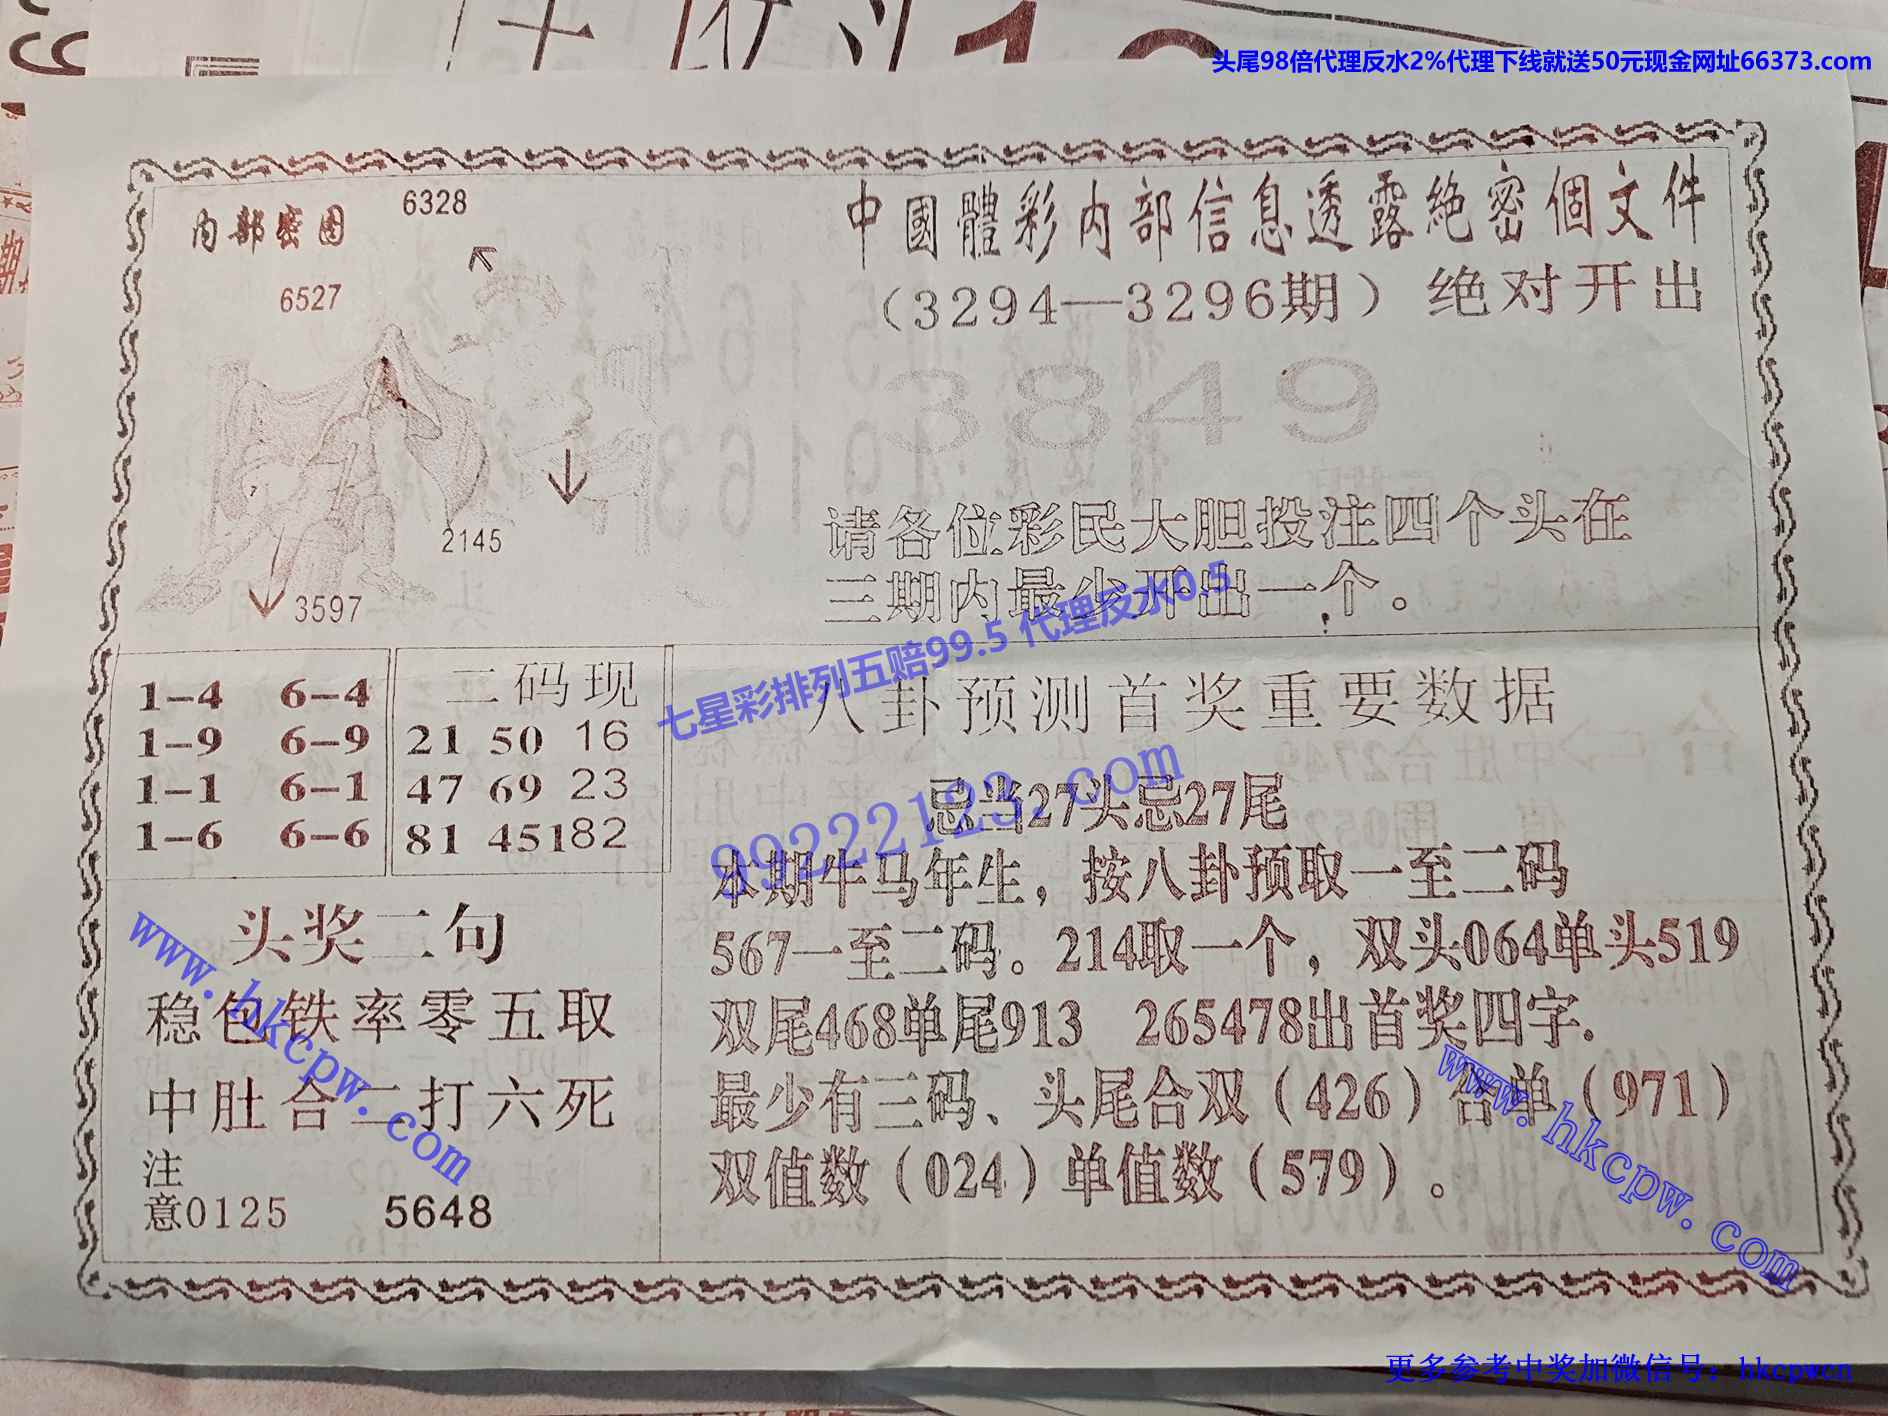 头尾98倍代理反水2%代理下线就送50元现金网址66373.com
内部密图
6328
6527
2145
3597
中國體彩内部信息透露絶密個文件
（3294—3296期）绝对开出
3849
请各位彩民大胆投注四个头在
三期内最少开出一个。
七星彩排列五赔99.5 代理反水0.5
99222123.com
1-4 6-4
1-9 6-9
1-1 6-1
1-6 6-6
二码现
21 50 16
47 69 23
81 45 182
八卦预测首奖重要数据
忌当27头忌27尾
本期牛马年生，按八卦预取一至二码
567一至二码。214取一个，双头064单头519
双尾468单尾913 265478出首奖四字.
最少有三码、头尾合双（426）合单（971）
双值数（024）单值数（579）。
头奖二句
稳包铁率零五取
中肚合二打六死
注
意0125 5648
www.hkcpw.com
www.hkcpw.com
更多参考中奖加微信号：hkcpwcn